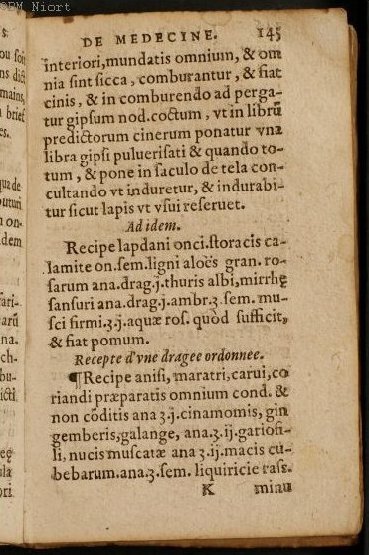 ©PM Niort
DE MEDECINE. 145
interiori, mundatis omnium, & om
nia sint sicca, comburantur, & fiat
cinis, & in comburendo ad perga-
tur gipsum nod. coctum, vt in librũ
predictorum cinerum ponatur vna
libra gipsi puluerisati & quando to-
tum, & pone in saculo de tela con-
cultando vt induretur, & indurabi-
tur sicut lapis vt vsui reseruet.
Ad idem.
Recipe lapdani onci. storacis ca-
lamite on. sem. ligni aloës gran. ro-
sarum ana. drag. j. thuris albi, mirrhę
sansuri ana. drag. j. ambr. ʒ. sem. mu-
sci firmi. ʒ. j. aquæ ros. quòd sufficit,
& fiat pomum.
Recepte d'vne dragee ordonnee.
¶ Recipe anisi, maratri, carui, co
riandi præparatis omnium cond. &
non cõditis ana ʒ. j. cinamomis, gin
gemberis, galange, ana. ʒ. ij. gariofi-
li, nucis muscatæ ana ʒ. ij. macis cu-
bebarum. ana. ʒ. sem. liquiricie rase.
K miau